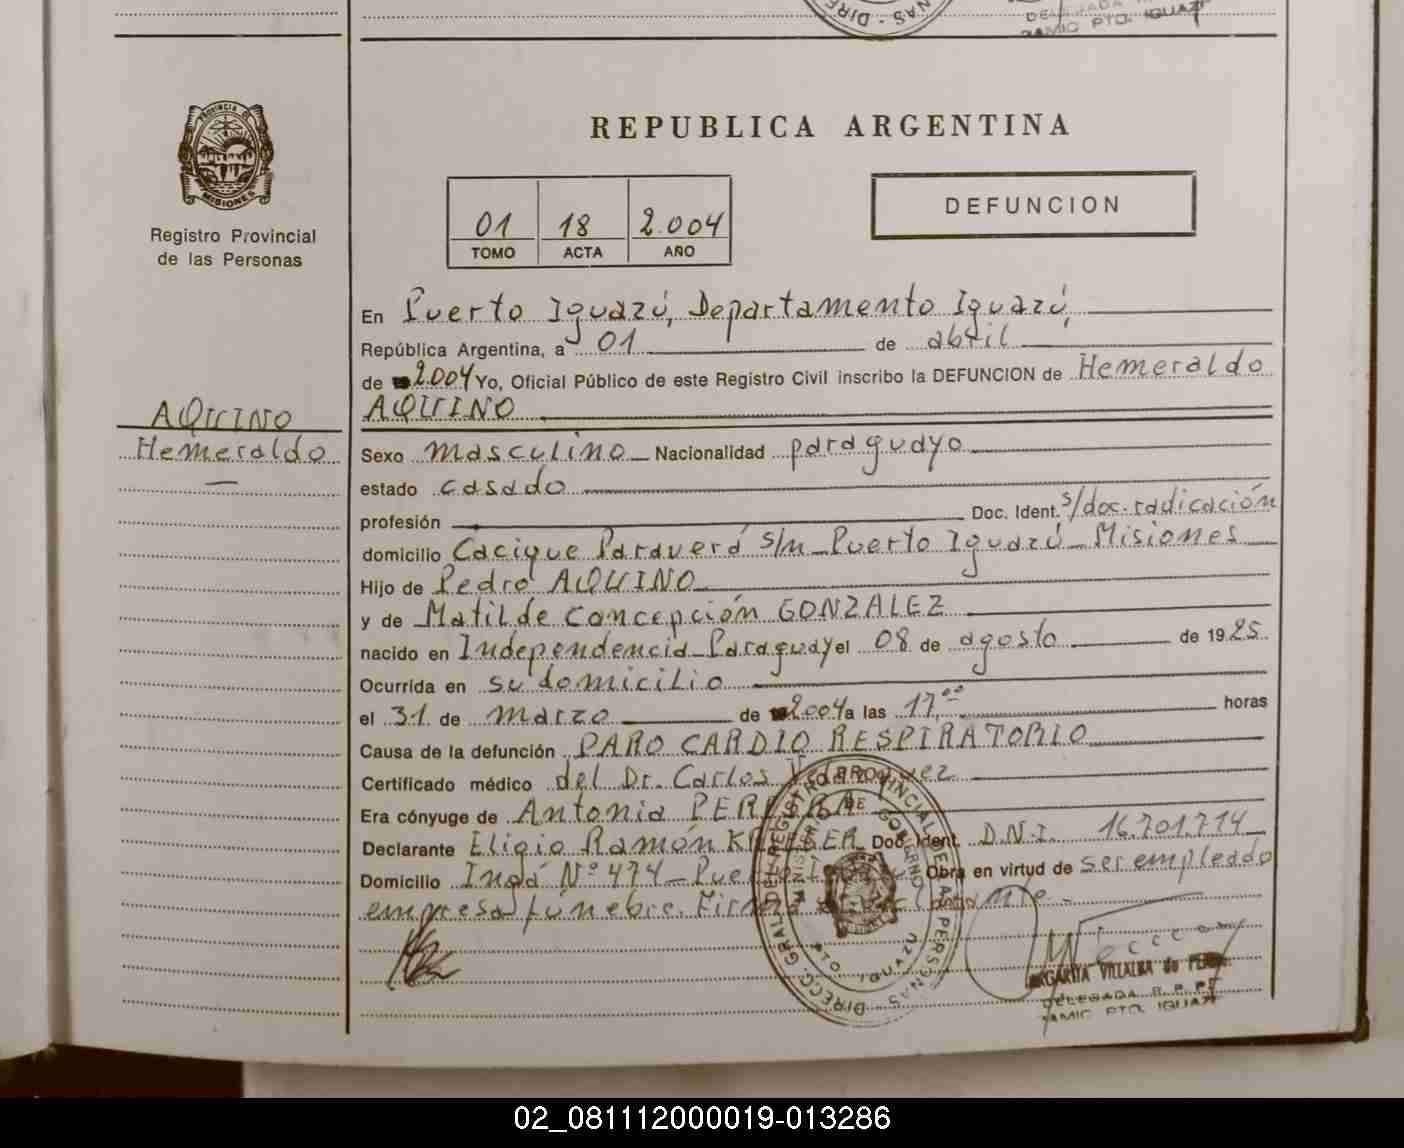 DELEGADA
RAMIC PTO. IGUAZU
PROVINCIA DE
MISIONES
Registro Provincial
de las Personas
REPUBLICA ARGENTINA
01 18 2.004
TOMO ACTA AÑO
DEFUNCION
En Puerto Iguazú, Departamento Iguazú,
República Argentina, a 01 de abril
de 2004 Yo, Oficial Público de este Registro Civil inscribo la DEFUNCION de Hemeraldo
AQUINO
AQUINO
Hemeraldo
Sexo masculino Nacionalidad paraguayo
estado casado
profesión Doc. Ident. s/doc. radicación
domicilio Cacique Paraverá s/n Puerto Iguazú Misiones
Hijo de Pedro AQUINO
y de Matilde Concepción GONZALEZ
nacido en Independencia Paraguay el 08 de agosto de 1925
Ocurrida en su domicilio
el 31 de marzo de 2004 a las 17,00 horas
Causa de la defunción PARO CARDIO RESPIRATORIO
Certificado médico del Dr. Carlos
Era cónyuge de Antonia PEREIRA
Declarante Eligio Ramón KRIEGER Doc. Ident. D.N.I. 16.701.714
Domicilio Ingá Nº 474 Obra en virtud de ser empleado
empresa fúnebre. Firma
DIRECC. GRAL. DEL REGISTRO PROVINCIAL DE LAS PERSONAS
MINISTERIO DE GOBIERNO
PTO IGUAZU
MARGARITA VILLALBA de
DELEGADA R. P. P.
RAMIC PTO. IGUAZU
02_081112000019-013286